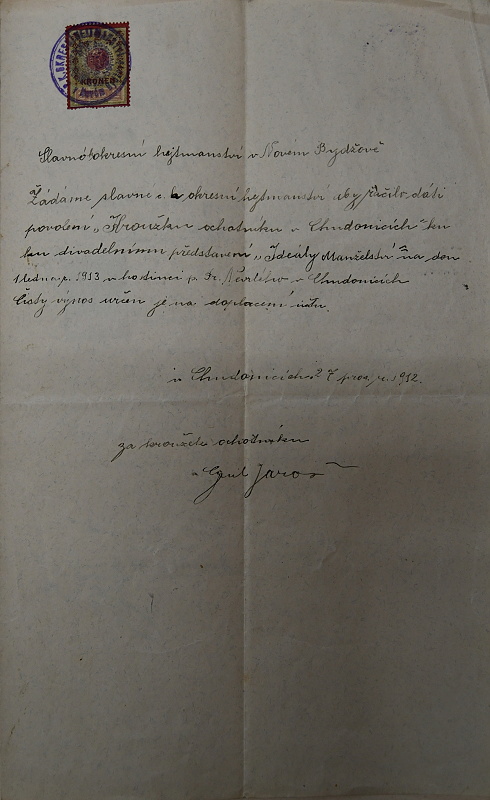 KRONEN
Slavné okresní hejtmanství v Novém Bydžově
Žádáme slavné c. k okresní hejtmanství aby račilo dáti
povolení „Kroužku ochotníku v Chudonicích" ku
ku divadelnímu představení „Ideály Manželství" na den
1 ledna r. 1913 v hostinci p. v Chudonicích
Čistý výnos určen je na doplacení
v Chudonicích 27 pros. r. 1912.
za kroužek ochotníku
Jaroš